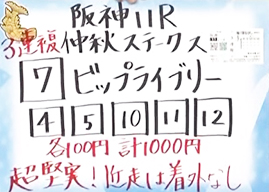 阪神11R
3連複 仲秋ステークス
7 ビップライブリー
4 5 10 11 12
各100円 計1000円
超堅実！近走は着外なし